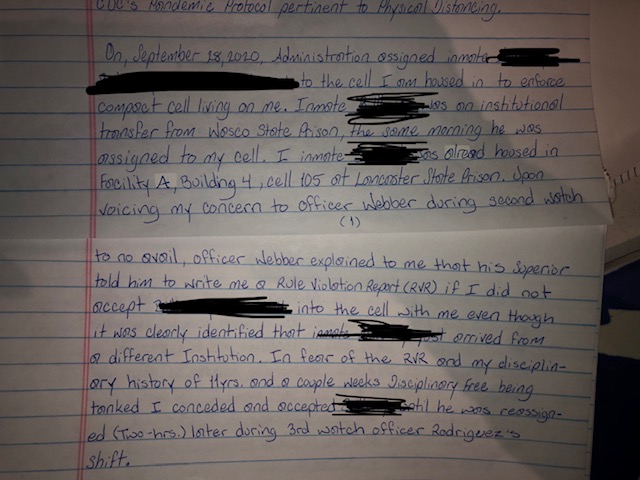 CDC's Pandemic Protocol pertinent to Physical Distancing.
On, September 28, 2020, Administration assigned inmate
to the cell I am housed in to enforce
compact cell living on me. Inmate was an institutional
transfer from Wasco State Prison, the same morning he was
assigned to my cell. I inmate was alread housed in
Facility A, Building 4, cell 105 at Lancaster State Prison. Upon
voicing my concern to officer Webber during second watch
(1)
to no avail, officer Webber explained to me that his Superior
told him to write me a Rule Violation Report (RVR) if I did not
accept into the cell with me even though
it was clearly identified that arrived from
a different Institution. In fear of the RVR and my disciplin-
ary history of 11yrs. and a couple weeks Disciplinary free being
tanked I conceded and accepted until he was reassign-
ed (Two-hrs.) later during 3rd watch officer Rodriguez's
shift.